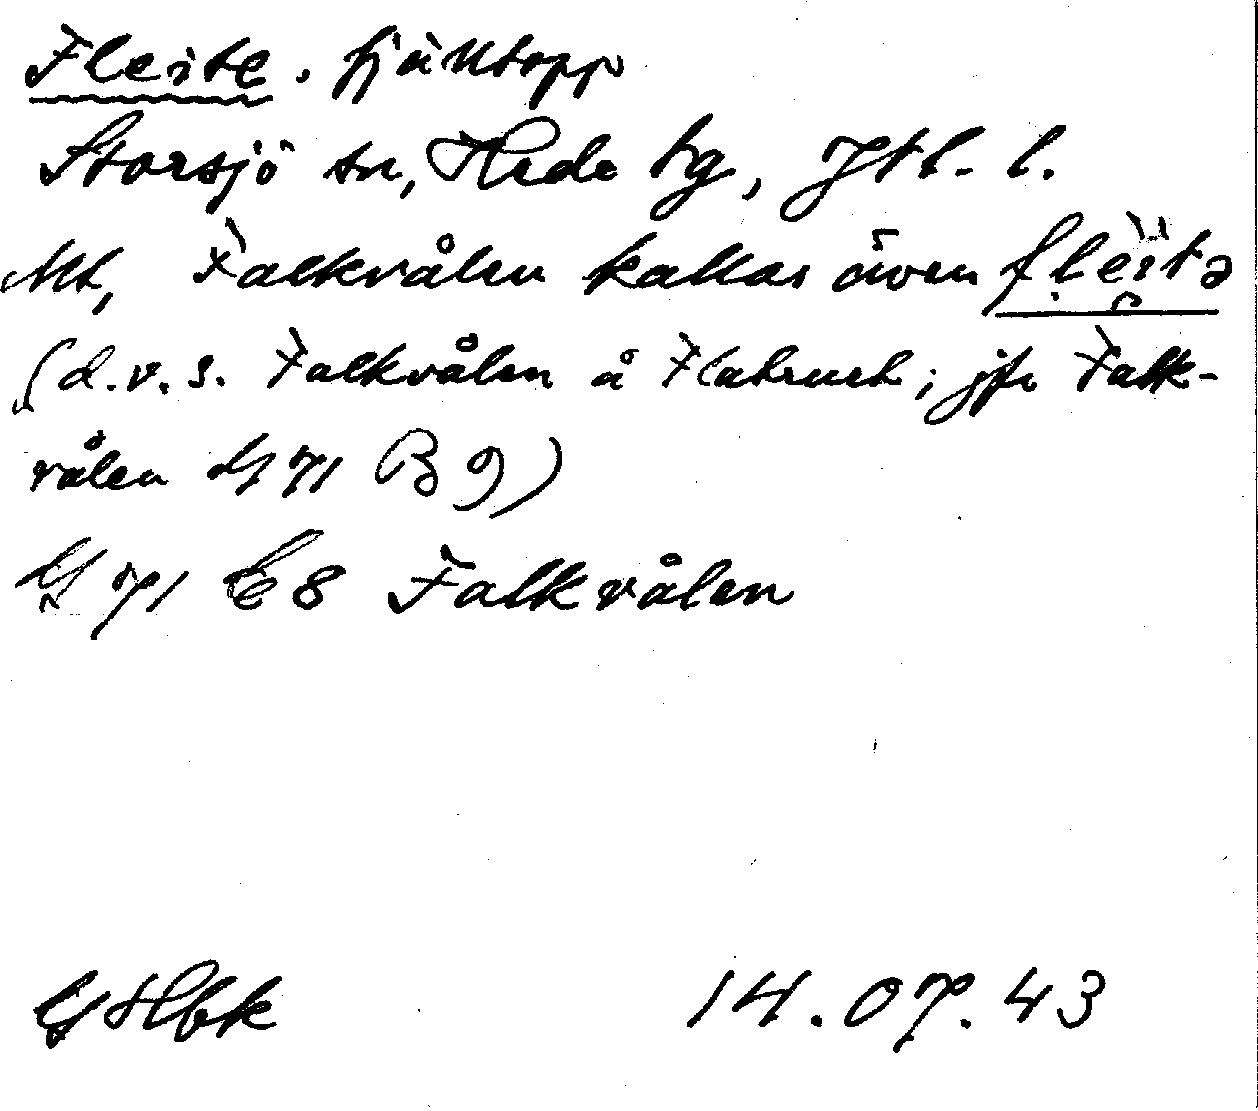 Fleite. fjälltopp
Storsjö sn, Hede tg, Jtl. l.
Mt, Falkvålen kallas även fleitə
(d.v.s. Falkvålen å Flatruet; jfr Falk-
vålen G 71 B 9)
G 71 C8 Falkvålen
GHbk 14.07.43